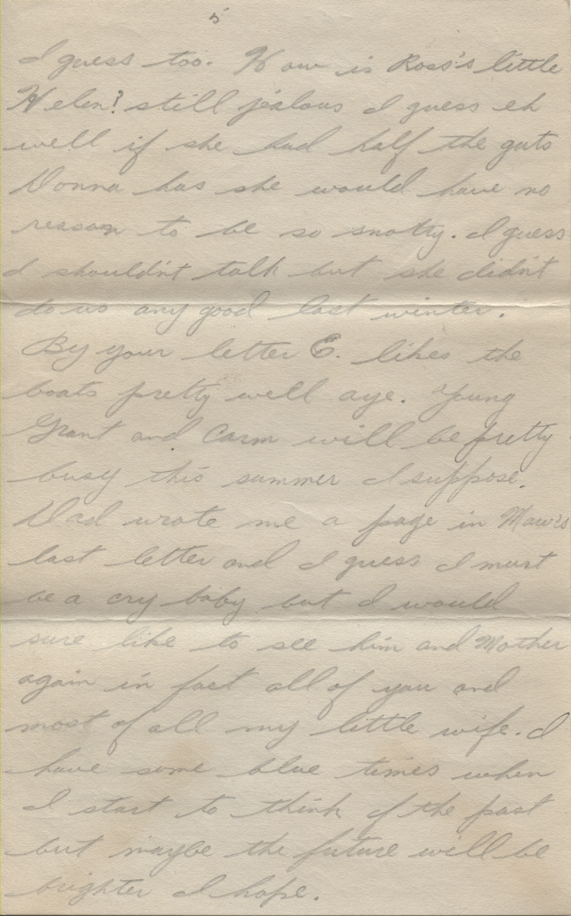 5
I guess too. How is Ross's little
Helen? still jealous I guess eh
well if she had half the guts
Donna has she would have no
reason to be so snotty. I guess
I shouldn't talk but she didn't
do us any good last winter.
By your letter E. likes the
boats pretty well aye. Young
Grant and Carm will be pretty
busy this summer I suppose.
Dad wrote me a page in Maw's
last letter and I guess I must
be a cry baby but I would
sure like to see him and Mother
again in fact all of you and
most of all my little wife. I
have some blue times when
I start to think of the past
but maybe the future will be
brighter I hope.